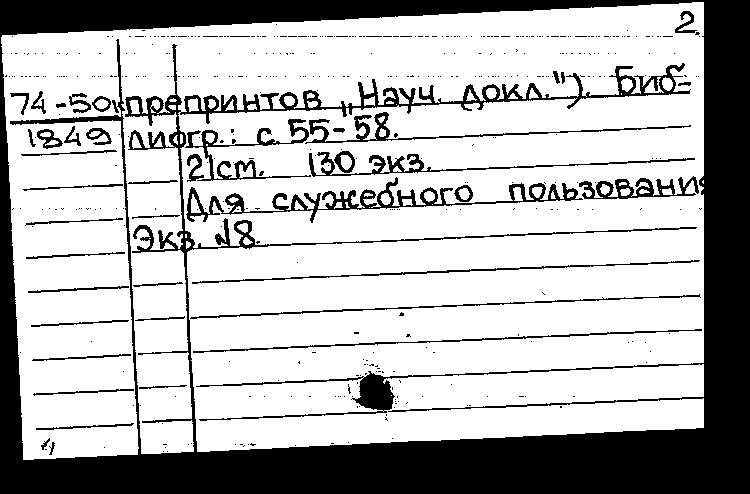 2
74-50к препринтов „Науч. докл."). Биб-
1849 лиогр.: с. 55-58.
21см. 130 экз.
Для служебного пользования
Экз. №8